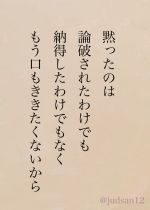 黙ったのは
論破されたわけでも
納得したわけでもなく
もう口もききたくないから
@judsan12